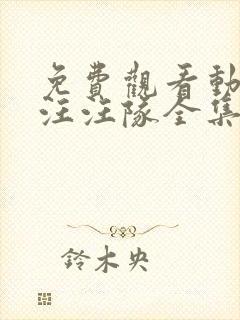 免費觀看動
汪汪隊全集
鈴木央